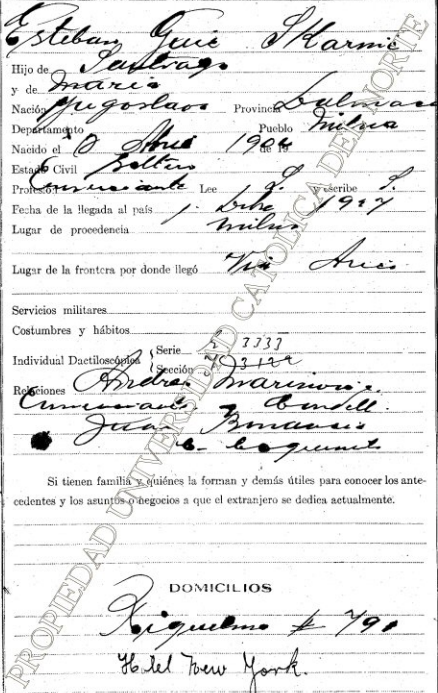 Esteban Guic SKarmic
Hijo de Santiago
y de Maria
Nación Yugoslavo Provincia Dalmacia
Departamento Pueblo Milna
Nacido el 3 190 de 19
Estado Civil Soltero
Profesión Comerciante Lee S. y escribe S.
Fecha de la llegada al país 1927
Lugar de procedencia Milna
Lugar de la frontera por donde llegó Via Arica
Servicios militares
Costumbres y hábitos
Individual Dactiloscópica Serie 3333
Sección
Relaciones Andres Marinovic
Comerciante y
Juan
Si tienen familia y quiénes la forman y demás útiles para conocer los ante-
cedentes y los asuntos o negocios a que el extranjero se dedica actualmente.
DOMICILIOS
Riquelme # 790
Hotel New York.
PROPIEDAD UNIVERSIDAD CATOLICA DEL NORTE